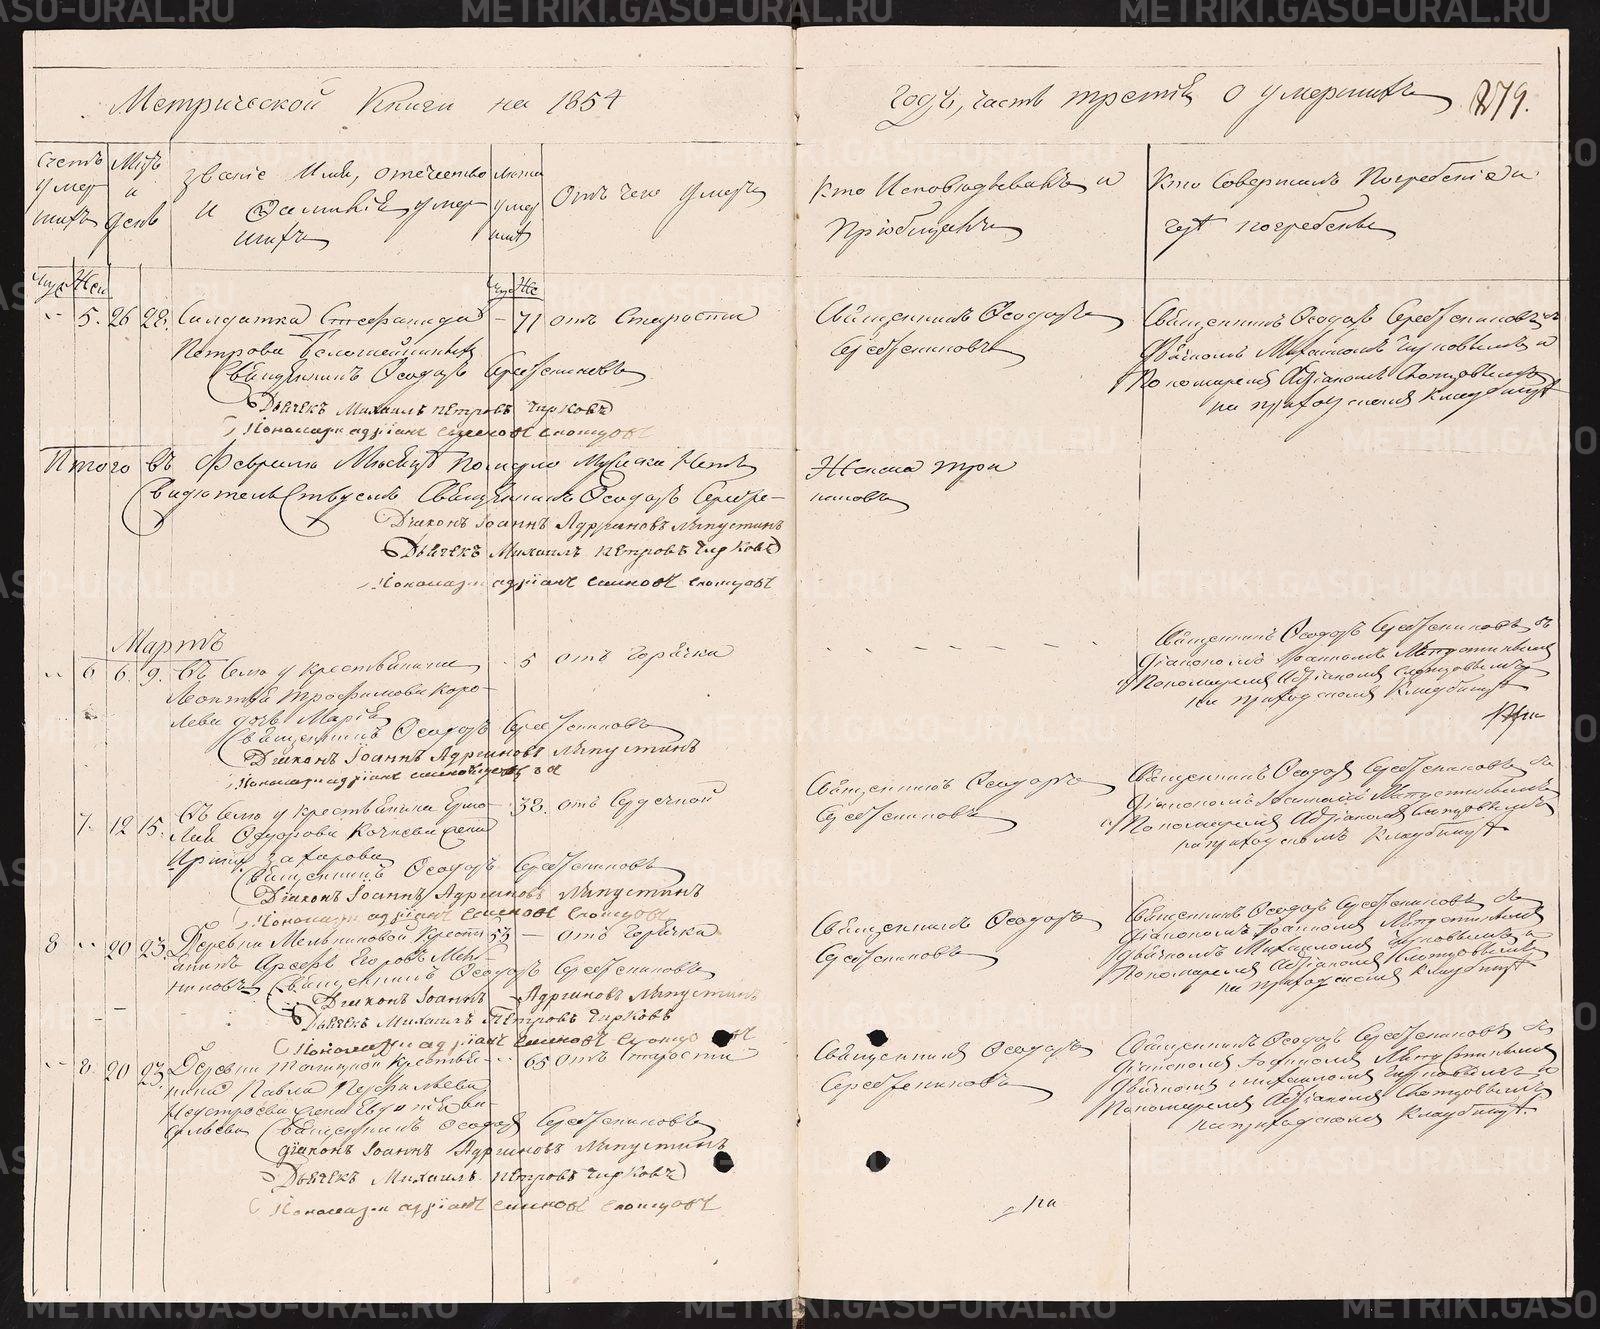 Метрической Книги на 1854
годъ, часть третія о умершихъ 279.
счетъ умершихъ
Мцъ и день
званіе Имя, отечество и Фамилія умершихъ
лета умершихъ
Отъ чего Умеръ
Кто Исповѣдывалъ и Пріобщалъ
Кто Совершалъ Погребеніе и гдѣ погребены
Муж Жен
Муж Же
5. 26 28. Солдатка Стефанида — 71 отъ Старости
Петрова
Священникъ Феодоръ Серебрениковъ
Дьячекъ Михаилъ Петровъ Чирковъ
Пономарь Адріанъ Симеоновъ Слопцовъ
Священникъ Феодоръ
Серебрениковъ
Священникъ Феодоръ Серебрениковъ съ
Дьячкомъ Михаиломъ Чирковымъ и
Пономаремъ Адріаномъ Слопцовымъ
на приходскомъ Кладбищѣ
Итого въ Февралѣ Мѣсяцѣ померло Мужска Нетъ
Женска три
Свидѣтельствуемъ Священникъ Феодоръ Серебре-
никовъ
Діаконъ Іоаннъ Адріановъ Мипустинъ
Дьячекъ Михаилъ Петровъ Чирковъ
Пономарь Адріанъ Симеоновъ Слопцовъ
Мартъ
6 6. 9. Въ Селѣ у крестьянина 5 отъ Горячки
Леонтія Трофимова Коро-
лева дочь Марія
Священникъ Феодоръ Серебрениковъ
Діаконъ Іоаннъ Адріановъ Мипустинъ
Пономарь Адріанъ
Священникъ Феодоръ Серебрениковъ съ
Діакономъ Іоанномъ Мипустинымъ
и Пономаремъ Адріаномъ Слопцовымъ
на приходскомъ Кладбищѣ
7. 12 15. Въ Селѣ у крестьянина Ермо- 38. отъ Сердечной
лая Федорова жена
Ирина Захарова
Священникъ Феодоръ Серебрениковъ
Діаконъ Іоаннъ Адріановъ Мипустинъ
Пономарь Адріанъ Симеоновъ Слопцовъ
Священникъ Феодоръ
Серебрениковъ
Священникъ Феодоръ Серебрениковъ съ
Діакономъ Іоанномъ Мипустинымъ
и Пономаремъ Адріаномъ Слопцовымъ
на приходскомъ Кладбищѣ
8 20 23. Деревни Мельниковой Крестья- 53 — отъ Горячки
нинъ Егоровъ Мель-
никовъ Священникъ Феодоръ Серебрениковъ
Діаконъ Іоаннъ Адріановъ Мипустинъ
Дьячекъ Михаилъ Петровъ Чирковъ
Пономарь Адріанъ Симеоновъ Слопцовъ
Священникъ Феодоръ
Серебрениковъ
Священникъ Феодоръ Серебрениковъ съ
Діакономъ Іоанномъ Мипустинымъ
Дьячкомъ Михаиломъ Чирковымъ и
Пономаремъ Адріаномъ Слопцовымъ
на приходскомъ Кладбищѣ
8. 20 23. Деревни крестья- 65 отъ Старости
нина Павла
жена
Священникъ Феодоръ Серебрениковъ
Діаконъ Іоаннъ Адріановъ Мипустинъ
Дьячекъ Михаилъ Петровъ Чирковъ
Пономарь Адріанъ Симеоновъ Слопцовъ
Священникъ Феодоръ
Серебрениковъ
Священникъ Феодоръ Серебрениковъ съ
Діакономъ Іоанномъ Мипустинымъ
Дьячкомъ Михаиломъ Чирковымъ и
Пономаремъ Адріаномъ Слопцовымъ
на приходскомъ Кладбищѣ.
METRIKI.GASO-URAL.RU